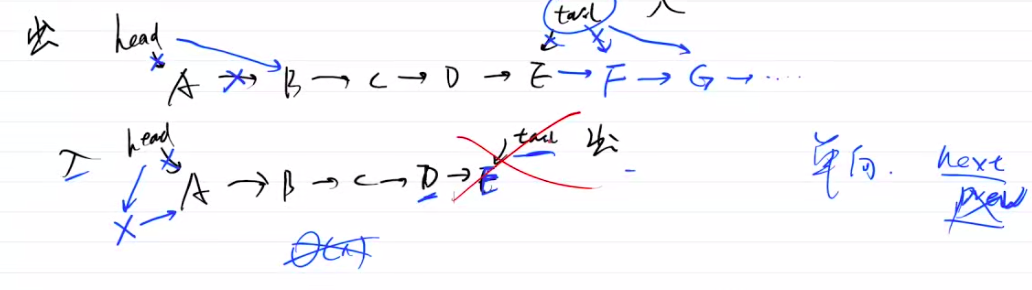 出 head tail 入
A → B → C → D → E → F → G → ····
入 head tail 出
X → A → B → C → D → E 单向. next
prev
O(n)